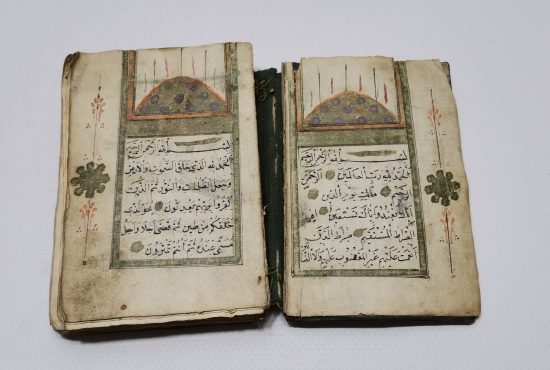 بسم الله الرحمن الرحيم
الحمد لله رب العالمين الرحمن
الرحيم ملك يوم الدين
اياك نعبد واياك نستعين اهدنا
الصراط المستقيم صراط الذين
انعمت عليهم غير المغضوب عليهم ولا الضالين
بسم الله الرحمن الرحيم
الحمد لله الذي خلق السموات والارض
وجعل الظلمات والنور ثم الذين
كفروا بربهم يعدلون هو الذي
خلقكم من طين ثم قضى اجلا واجل
مسمى عنده ثم انتم تمترون